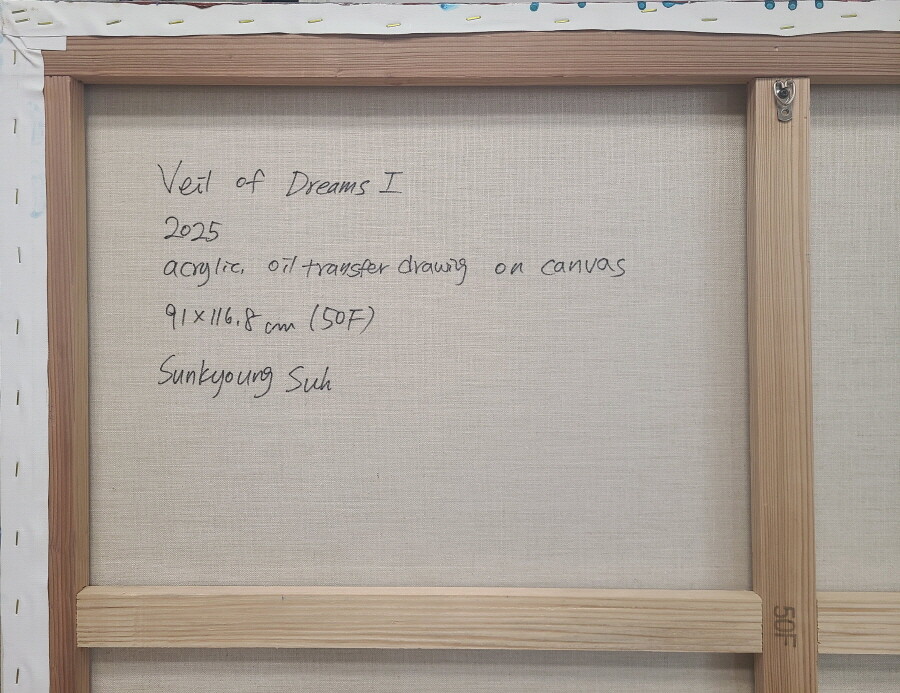 Veil of Dreams I
2025
acrylic, oil transfer drawing on canvas
91×116.8 cm (50F)
Sunkyoung Suh
50F